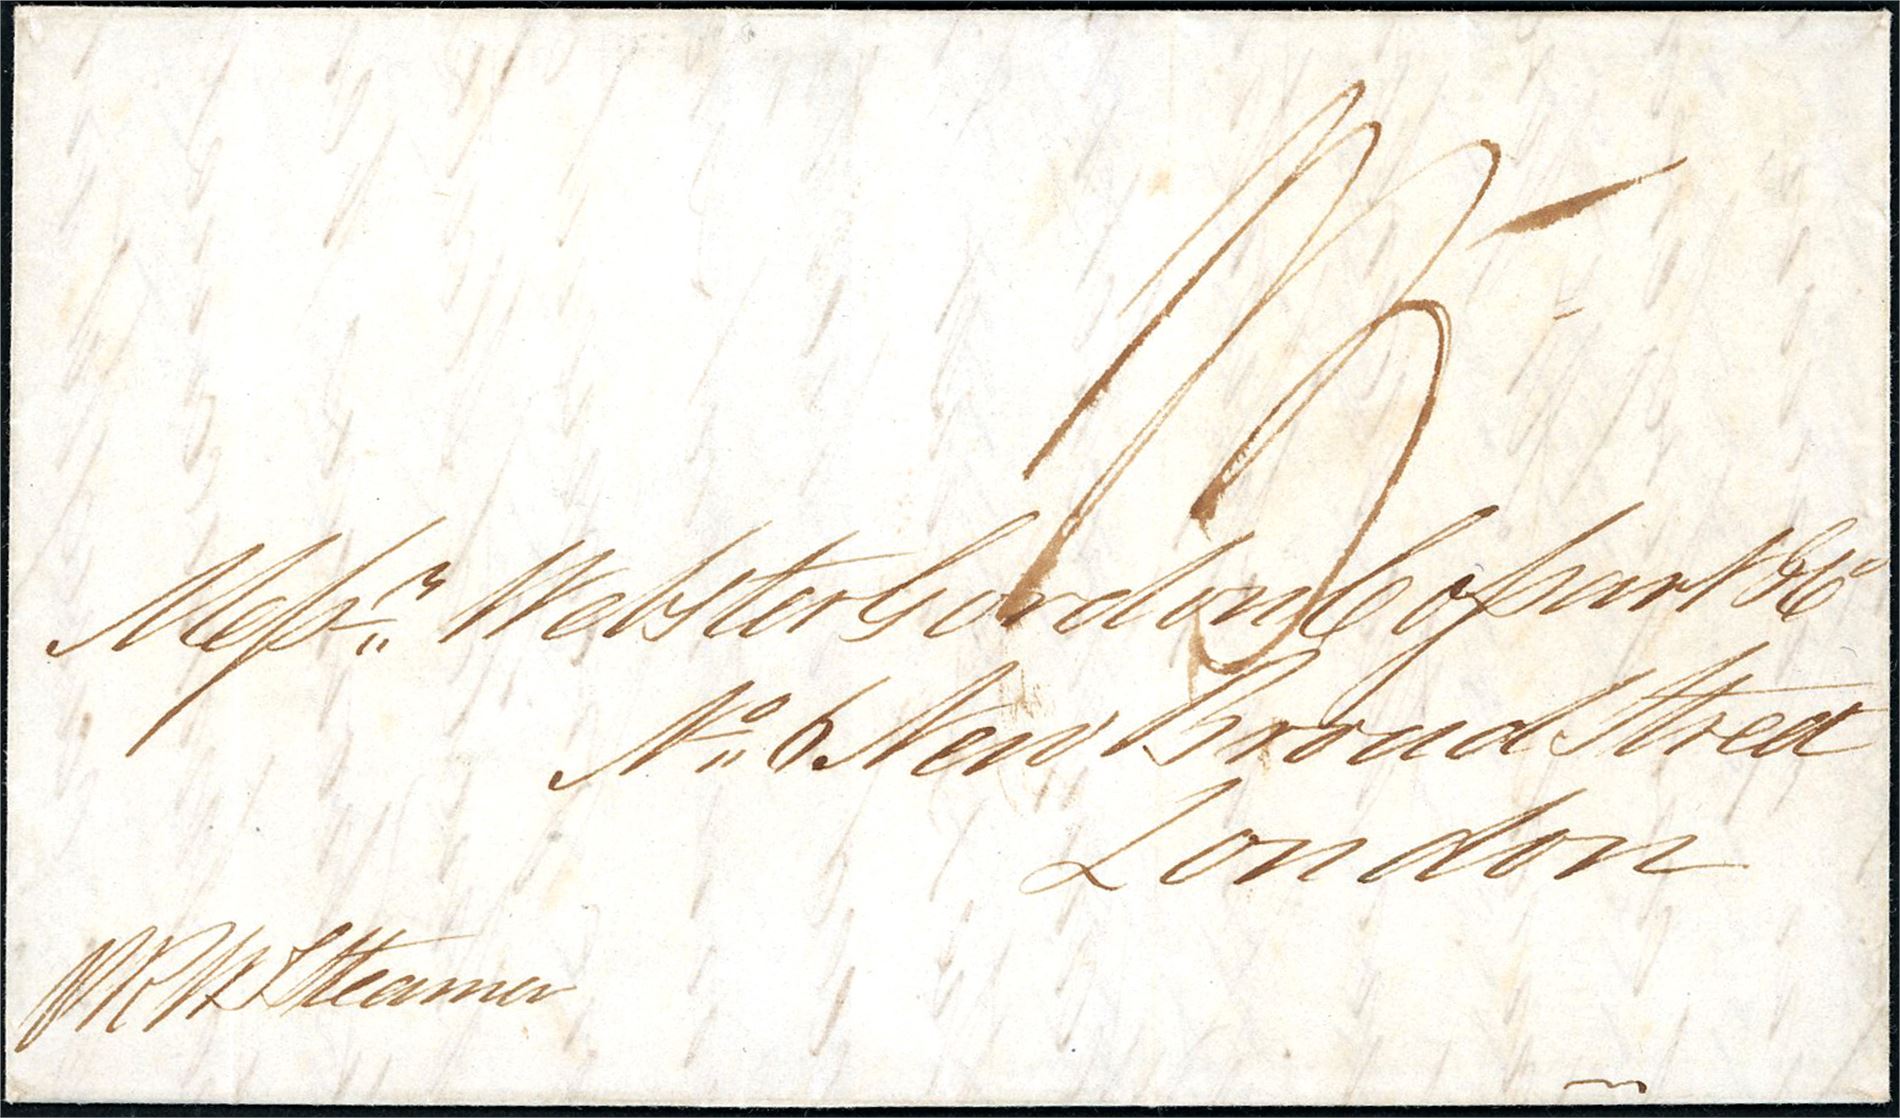 1/5
Messrs Webster Gordon Cossart & Co
No 6 New Broad Street
London
Steamer